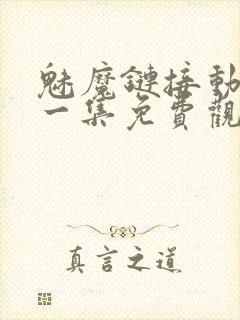 魅魔鏈接動
一集免費觀
真言之道